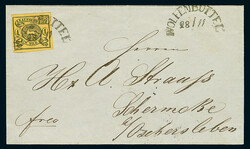 WOLFENBÜTTEL
28/11
Herrn
A. Strauss
Schermcke
b/Oschersleben
freo